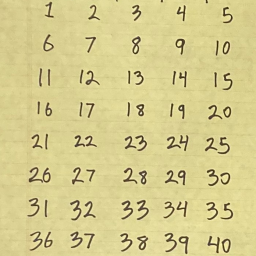 1 2 3 4 5
6 7 8 9 10
11 12 13 14 15
16 17 18 19 20
21 22 23 24 25
26 27 28 29 30
31 32 33 34 35
36 37 38 39 40